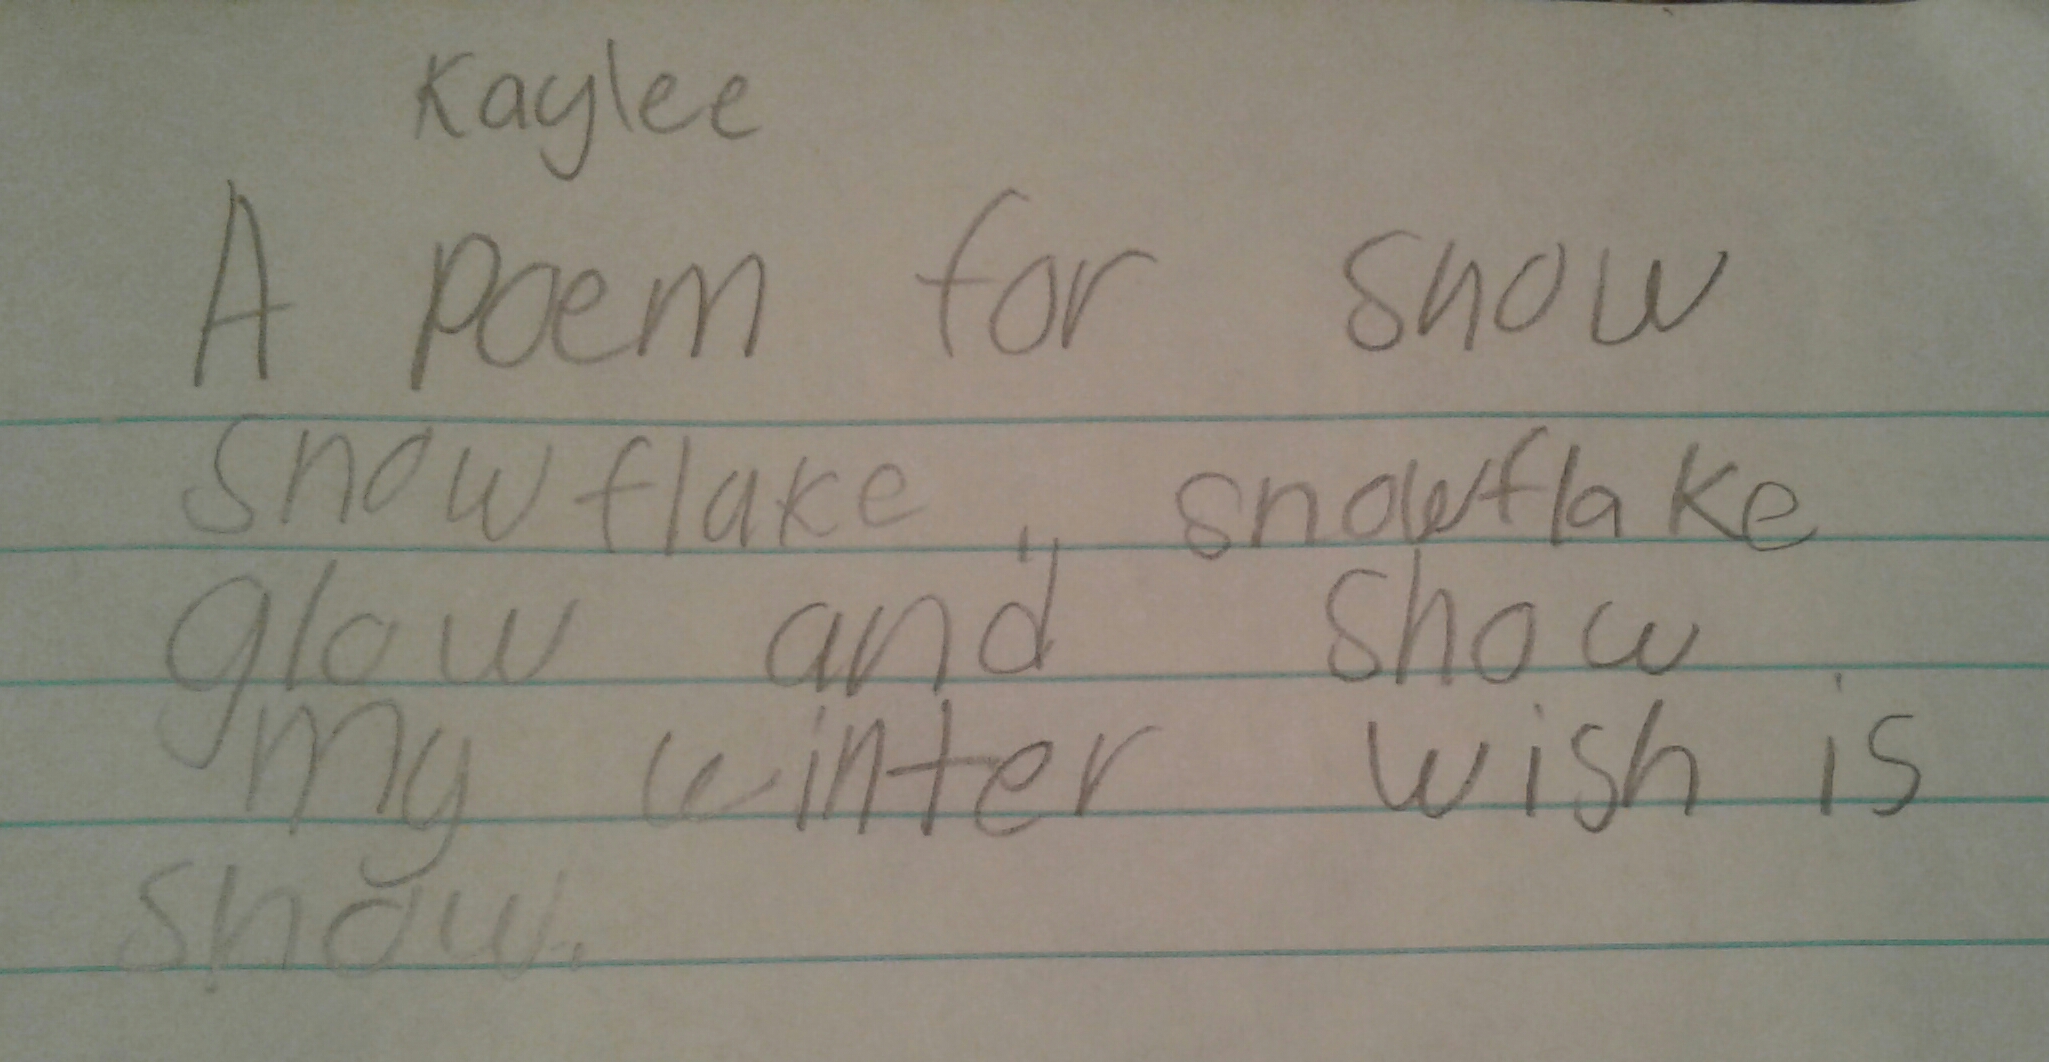 Kaylee
A poem for snow
snowflake, snowflake
glow and show
my winter wish is
snow.